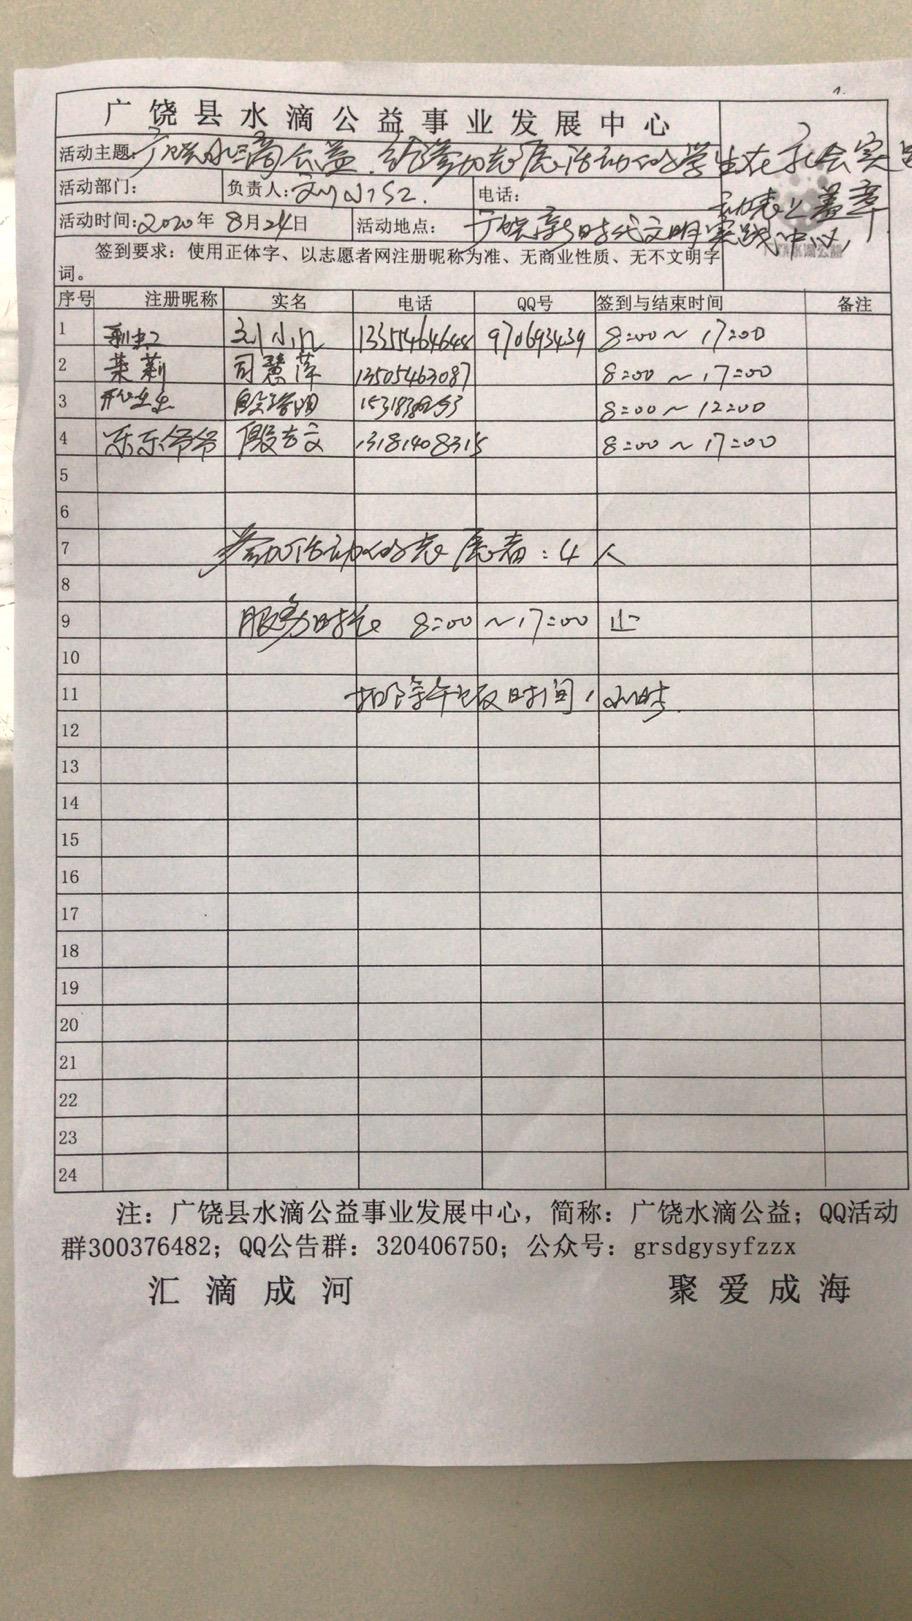 广饶县水滴公益事业发展中心
活动主题:广饶水滴公益.给参加志愿活动的学生在社会实
盖章
活动部门: 负责人: 电话:
活动时间:2020年 8月24日 活动地点: 广饶新时代文明实践中心
水滴公益
签到要求：使用正体字、以志愿者网注册昵称为准、无商业性质、无不文明字
词。
序号 注册昵称 实名 电话 QQ号 签到与结束时间 备注
1 970693439 8:00～17:00
2 茉莉 司慧萍 13505463087 8:00～17:00
3 8:00～12:00
4 乐乐爷爷 殷吉文 13181408315 8:00～17:00
5
6
7 参加活动的志愿者:4人
8
9 服务时长 8:00～17:00 止
10
11 扣除午饭时间1小时.
12
13
14
15
16
17
18
19
20
21
22
23
24
注：广饶县水滴公益事业发展中心，简称：广饶水滴公益；QQ活动
群300376482；QQ公告群：320406750；公众号：grsdgysyfzzx
汇滴成河 聚爱成海